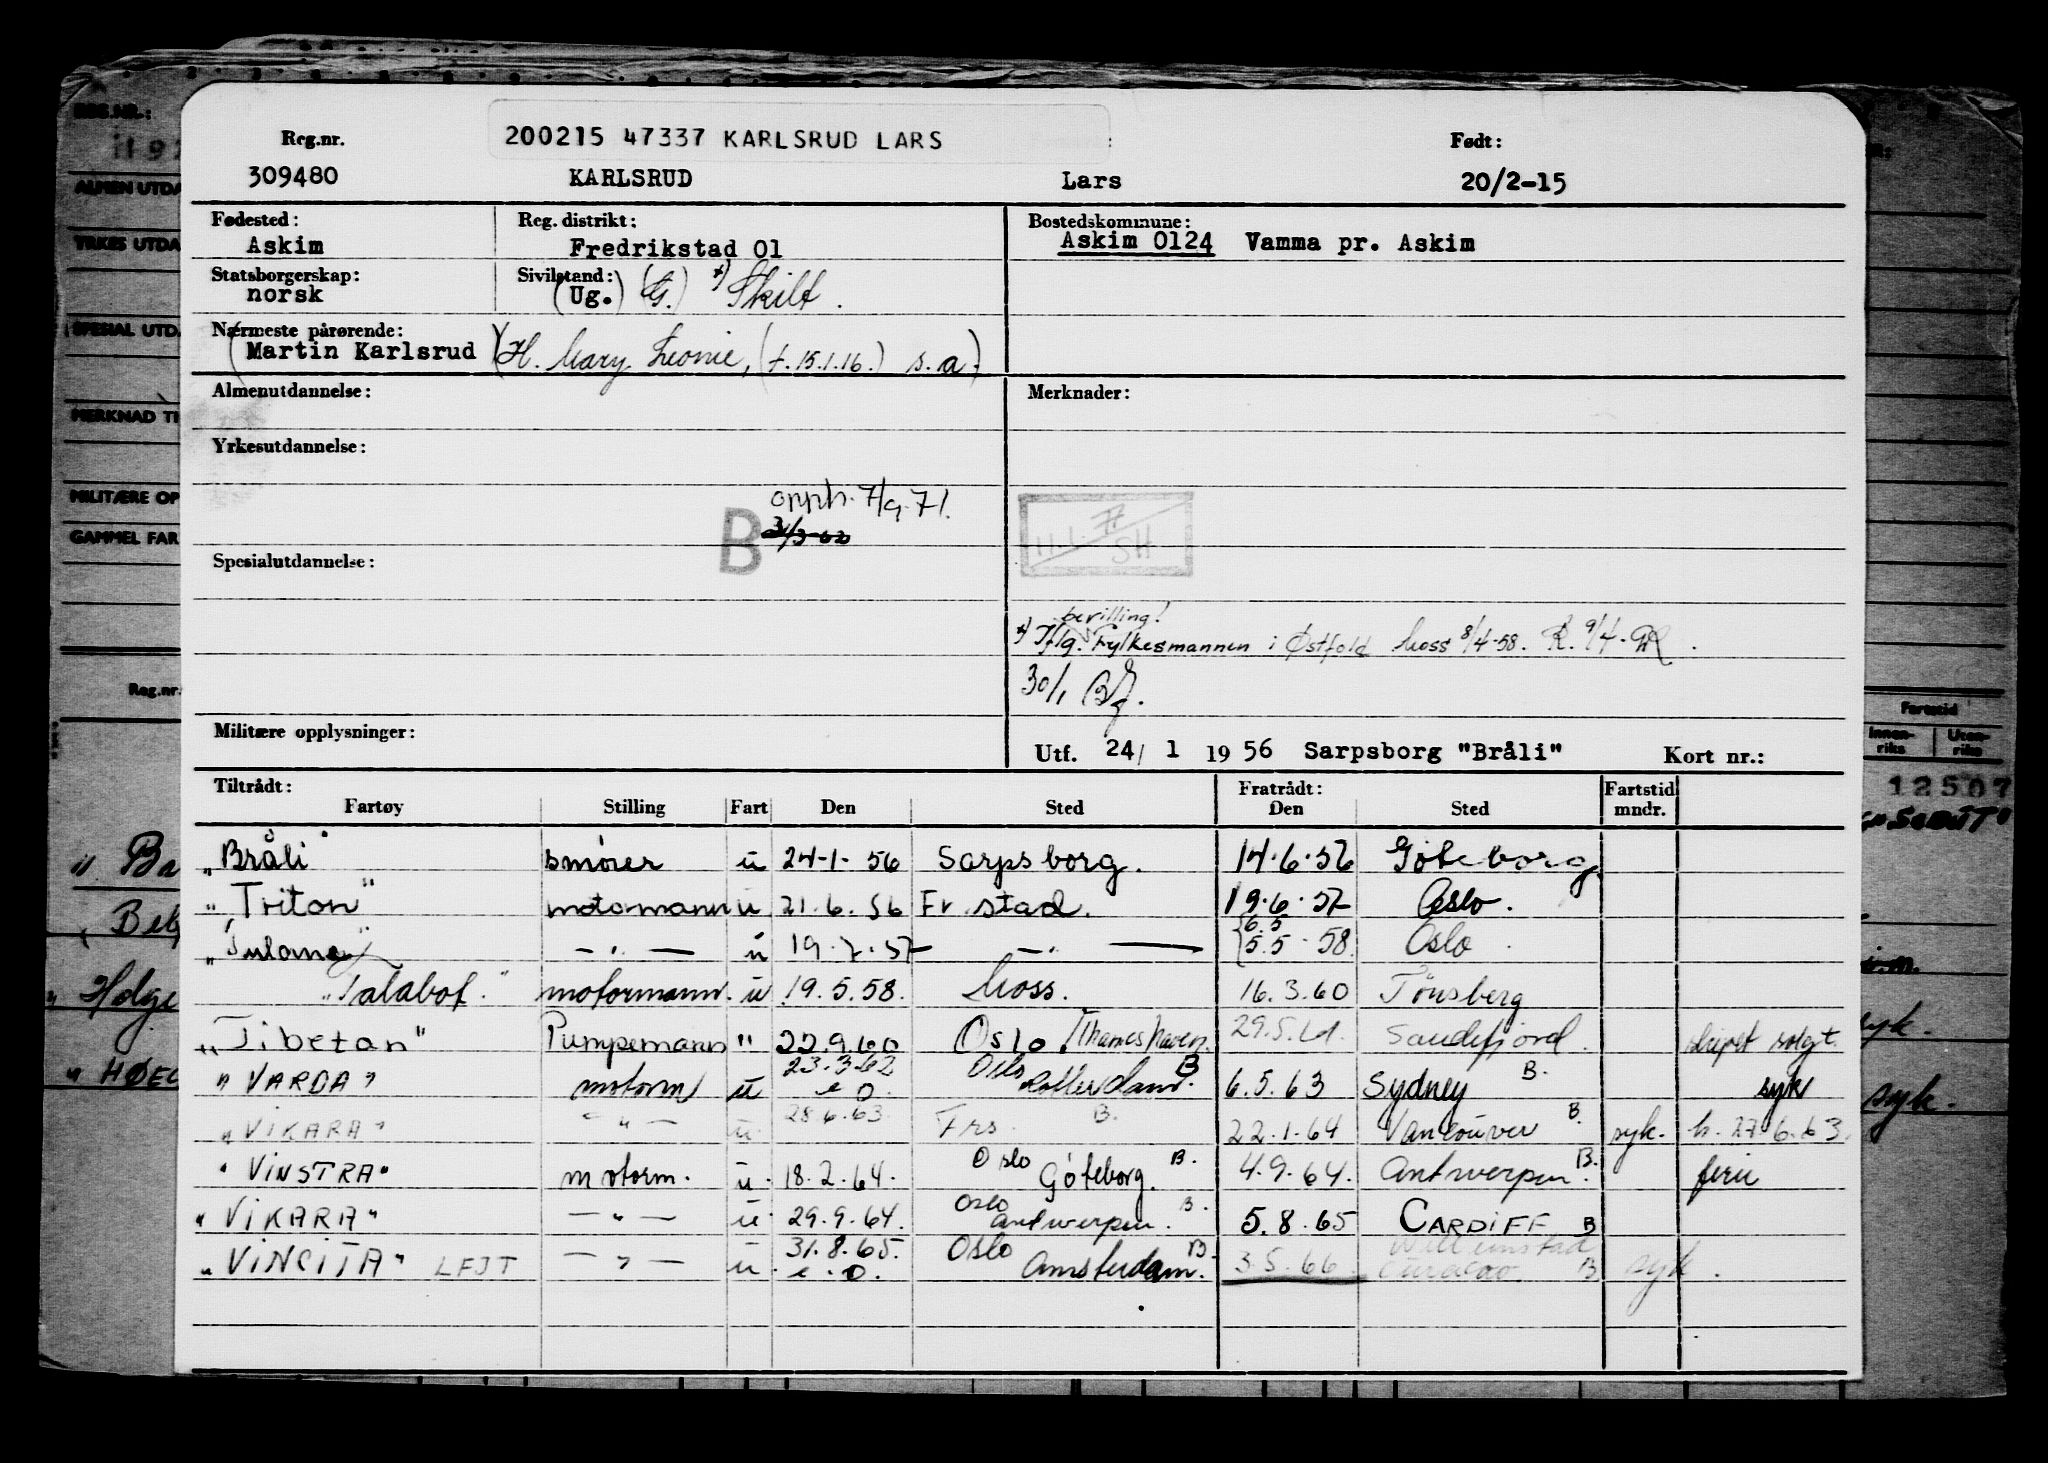 200215 47337 KARLSRUD LARS
Reg.nr. Født:
309480 KARLSRUD Lars 20/2-15
Fødested: Reg. distrikt: Bostedskommune:
Askim Fredrikstad 01 Askim 0124 Vamma pr. Askim
Statsborgerskap: Sivilstand:
norsk (Ug.) (G.) x) Skilt.
Nærmeste pårørende:
(Martin Karlsrud) (H. Mary Leonie, (f. 15.1.16.) s.a.)
Almenutdannelse: Merknader:
Yrkesutdannelse:
opph. 7/9-71.
B 3/3-62
11.1. 77
SH
Spesialutdannelse:
bevilling!
x) Iflg. Fylkesmannen i Østfold Moss 8/4-58. R. 9/4-
30/1
Militære opplysninger:
Utf. 24/ 1 19 56 Sarpsborg "Bråli" Kort nr.:
Tiltrådt: Fratrådt: Fartstid
Fartøy Stilling Fart Den Sted Den Sted mndr.
"Bråli" smører u 24-1-56 Sarpsborg. 14.6.56 Göteborg.
"Triton" motormann u 21.6.56 Fr.stad. 19.6.57 Oslo.
"Tulane" — " — u 19.7.57 — " — {6.5 5.5.58 Oslo.
"Talabot" motormann. u 19.5.58. Moss. 16.3.60 Tønsberg
"Tibetan" Pumpemann " 22.9.60 Oslo. Thameshaven. 29.5.61. Sandefjord. skipet solgt.
"VARDA" motorm u 23.3.62 e.o. Oslo Rotterdam. B 6.5.63 Sydney B. syk
"VIKARA" — " — u. 28.6.63 Frs. B. 22.1.64 Vancouver B. syk. h. 27.6.63.
"VINSTRA" motorm. u. 18.2.64. Oslo Göteborg. B. 4.9.64. Antwerpen. B. ferie
"VIKARA" — " — u. 29.9.64. Oslo Antwerpen. B. 5.8.65 CARDIFF B
"VINCITA" LFJT — " — u. 31.8.65. e.o. Oslo Amsterdam. B. 3.5.66. Willemstad Curacao. B syk.
REG.NR.:
ALMEN UTDA
YRKES UTDA
SPESIAL UTD.
MERKNAD TI
MILITÆRE OP
GAMMEL FAR
Reg.nr.
Fartstid
Innenriks Utenriks
12507
syk.
syk.